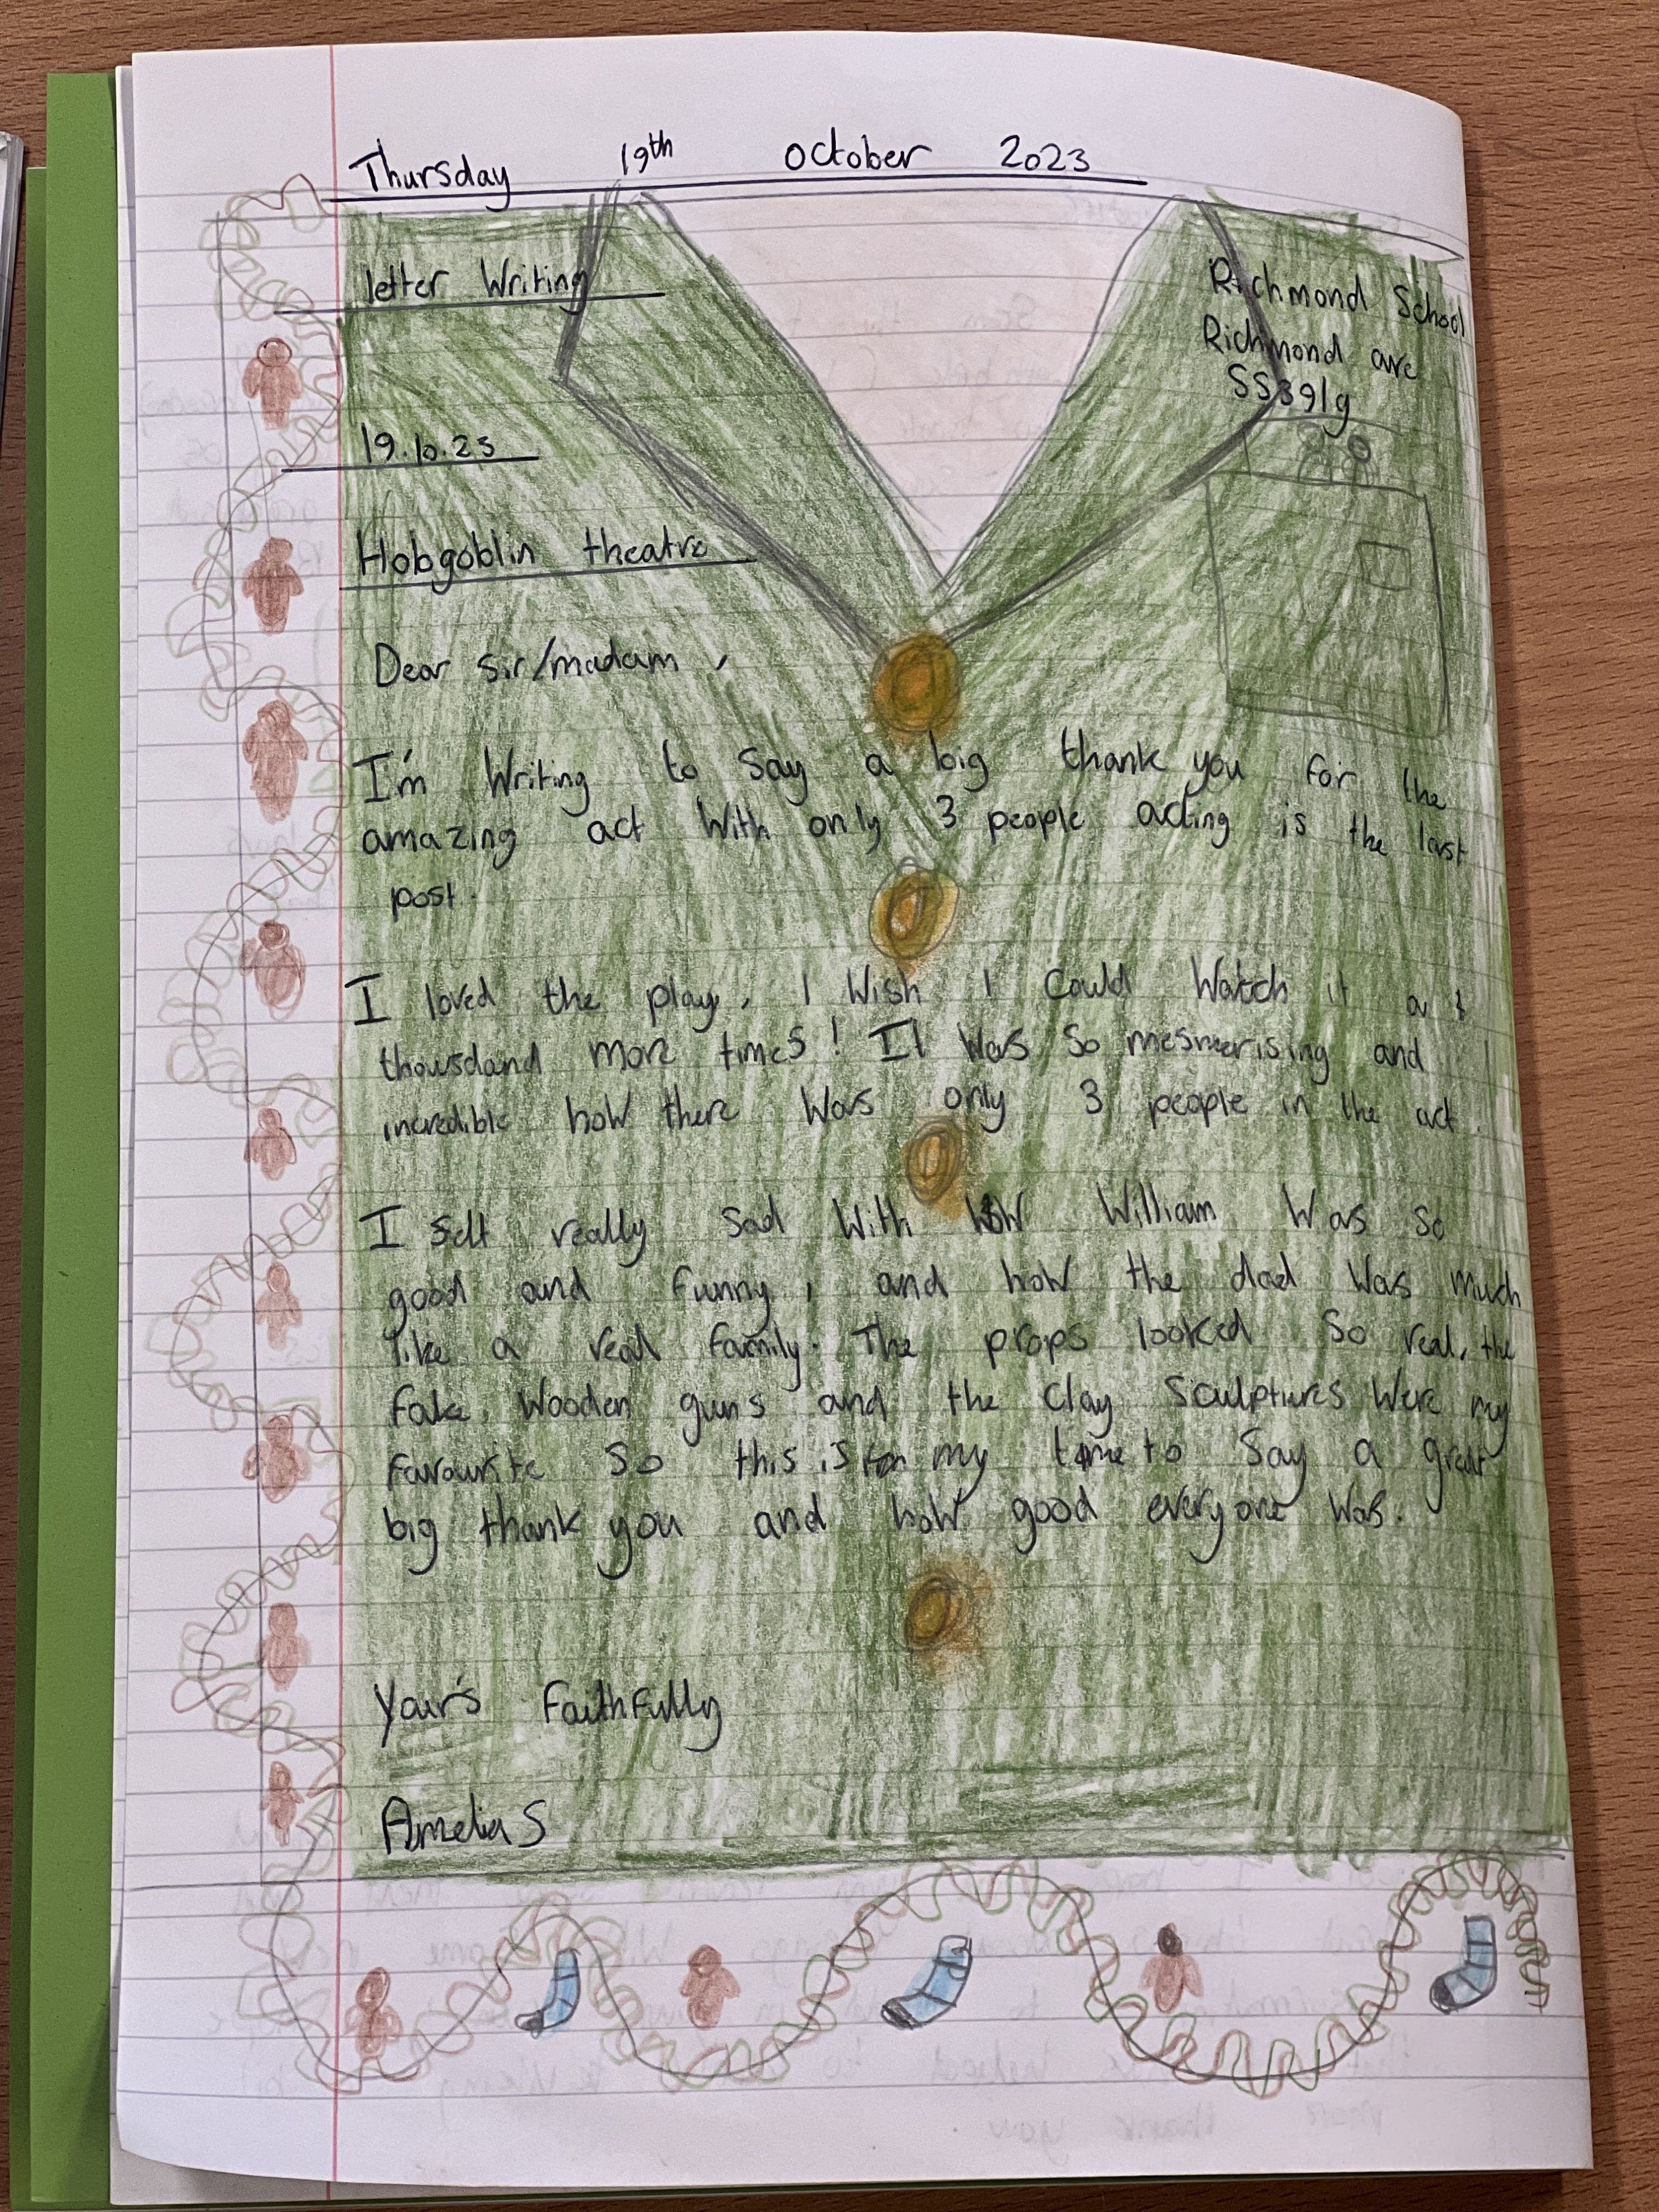 Thursday 19th October 2023
letter Writing
Richmond School
Richmond ave
SS39lg
19.10.23
Hobgoblin theatre
Dear sir/madam,
I'm Writing to Say a big thank you for the
amazing act With only 3 people acting is the last
post.
I loved the play, I Wish I Could Watch it a
thowsdand more times! It Was So mesmerising and
incredible how there Was only 3 people in the act.
I felt really sad With how William Was so
good and funny, and how the dad Was much
like a real family. The props looked So real, the
fake Wooden guns and the Clay Sculptures Were my
favourite So this is my time to Say a great
big thank you and how good everyone Was.
Your's Faithfully
Amelia S